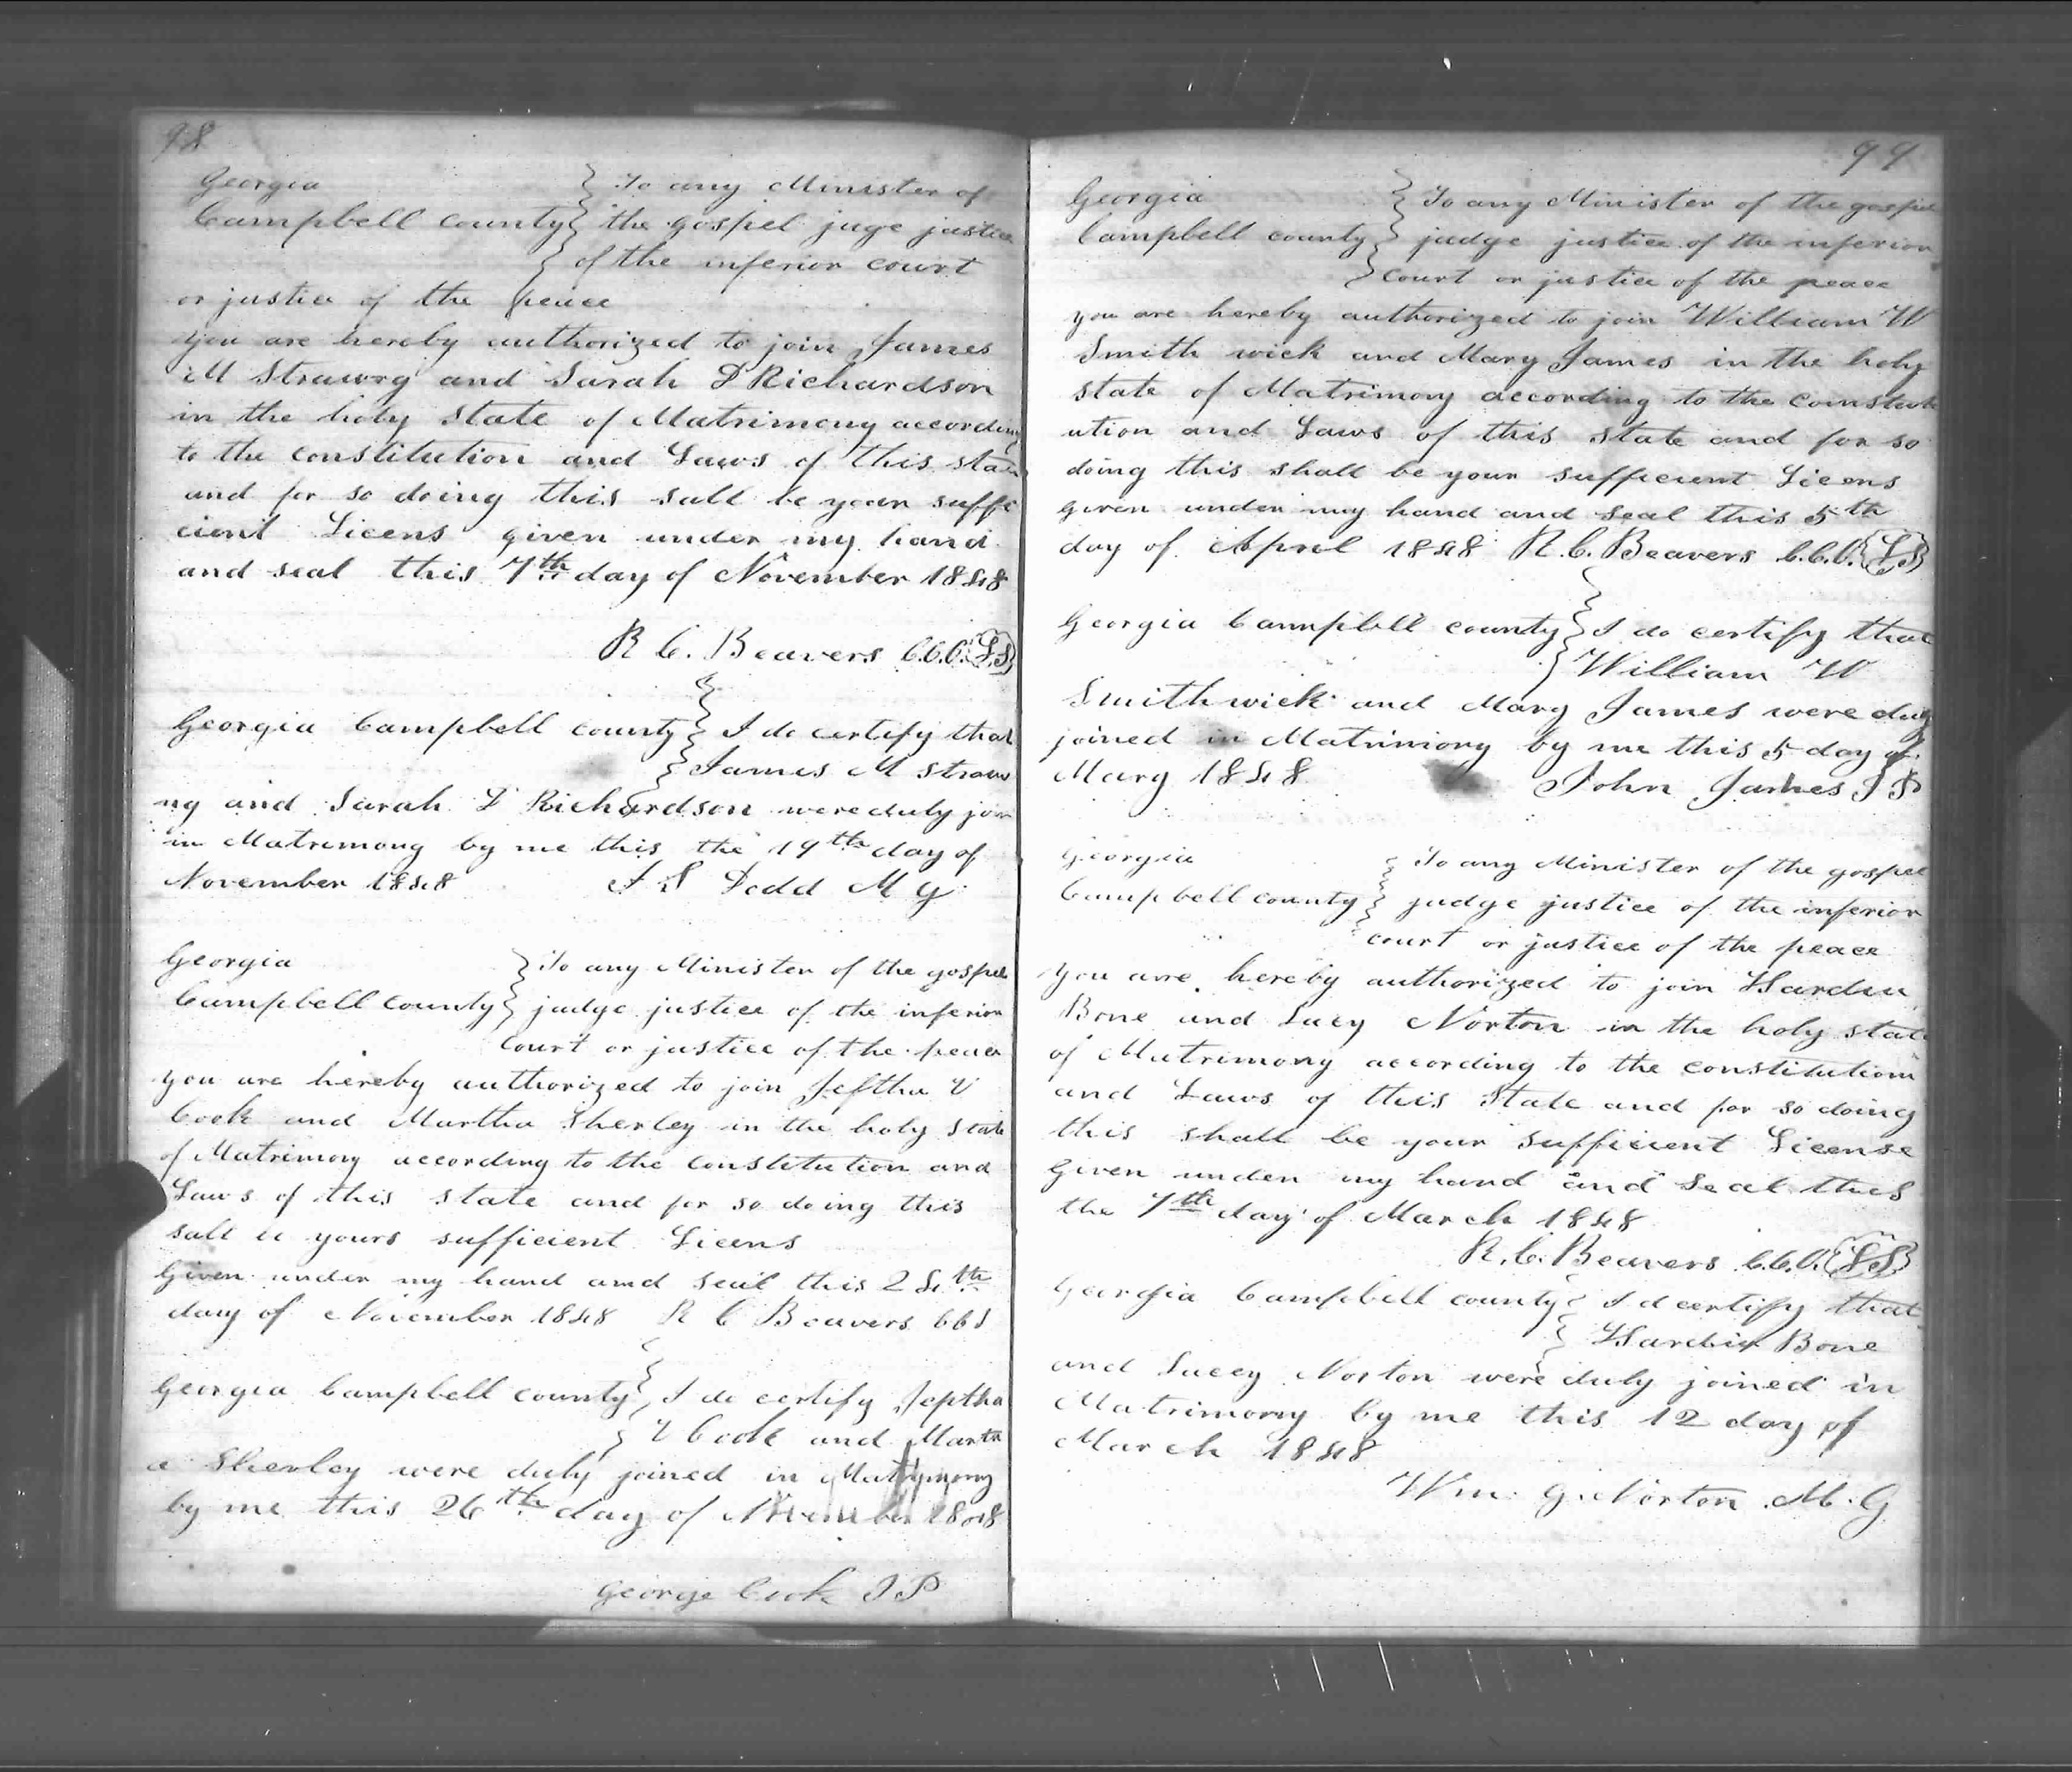 98
Georgia } To any Minister of
Campbell county } the gospel juge justice
} of the inferior court
or justice of the peace
you are hereby authorized to join James
M Strawng and Sarah D Richardson
in the holy state of Matrimony according
to the constitution and Laws of this state
and for so doing this sall be your suffi
cient Licens given under my hand
and seal this 7th day of November 1848
R C. Beavers C.C.O. (L.S)
Georgia Campbell county } I do certify that
} James M Straw
ng and Sarah D Richardson were duly join
in Matremony by me this the 19th day of
November 1848 J S Dodd M G.
Georgia } To any Minister of the gospel
Campbell county } judge justice of the inferior
Court or justice of the peace
you are hereby authorized to join Jeftha V
Cook and Martha Sherley in the holy State
of Matrimony according to the Constitution and
Laws of this state and for so doing this
sall be yours sufficient Licens
Given under my hand and seal this 24th
day of November 1848 R C Beavers CCO
Georgia Campbell county } I do certify Jeptha
} V Cook and Marth
a Sherley were duly joined in Matrimony
by me this 26th day of November 1848
George Cook J P
99
Georgia } To any Minister of the gospel
Campbell county } judge justice of the inferior
} Court or justice of the peace
you are hereby authorized to join William W
Smith wick and Mary James in the holy
state of Matrimony according to the Constit
ution and Laws of this state and for so
doing this shall be your sufficient Licens
given under my hand and seal this 5th
day of April 1848 R. C. Beavers C.C.O. (L S)
Georgia Campbell county } I do certify that
} William W
Smithwick and Mary James were duly
joined in Matrimony by me this 5 day of
Mary 1848 John James J P
Georgia } To any Minister of the gospel
Campbell county } judge justice of the inferior
court or justice of the peace
you are hereby authorized to join Hardin
Bone and Lucy Norton in the holy state
of Matrimony according to the constitution
and Laws of this State and for so doing
this shall be your sufficient License
given under my hand and seal this
the 7th day of March 1848
R. C. Beavers C.C.O. (L S)
Georgia Campbell county } I d certify that
} Hardin Bone
and Lucey Norton were duly joined in
Matrimony by me this 12 day of
March 1848
Wm. G. Norton M. G